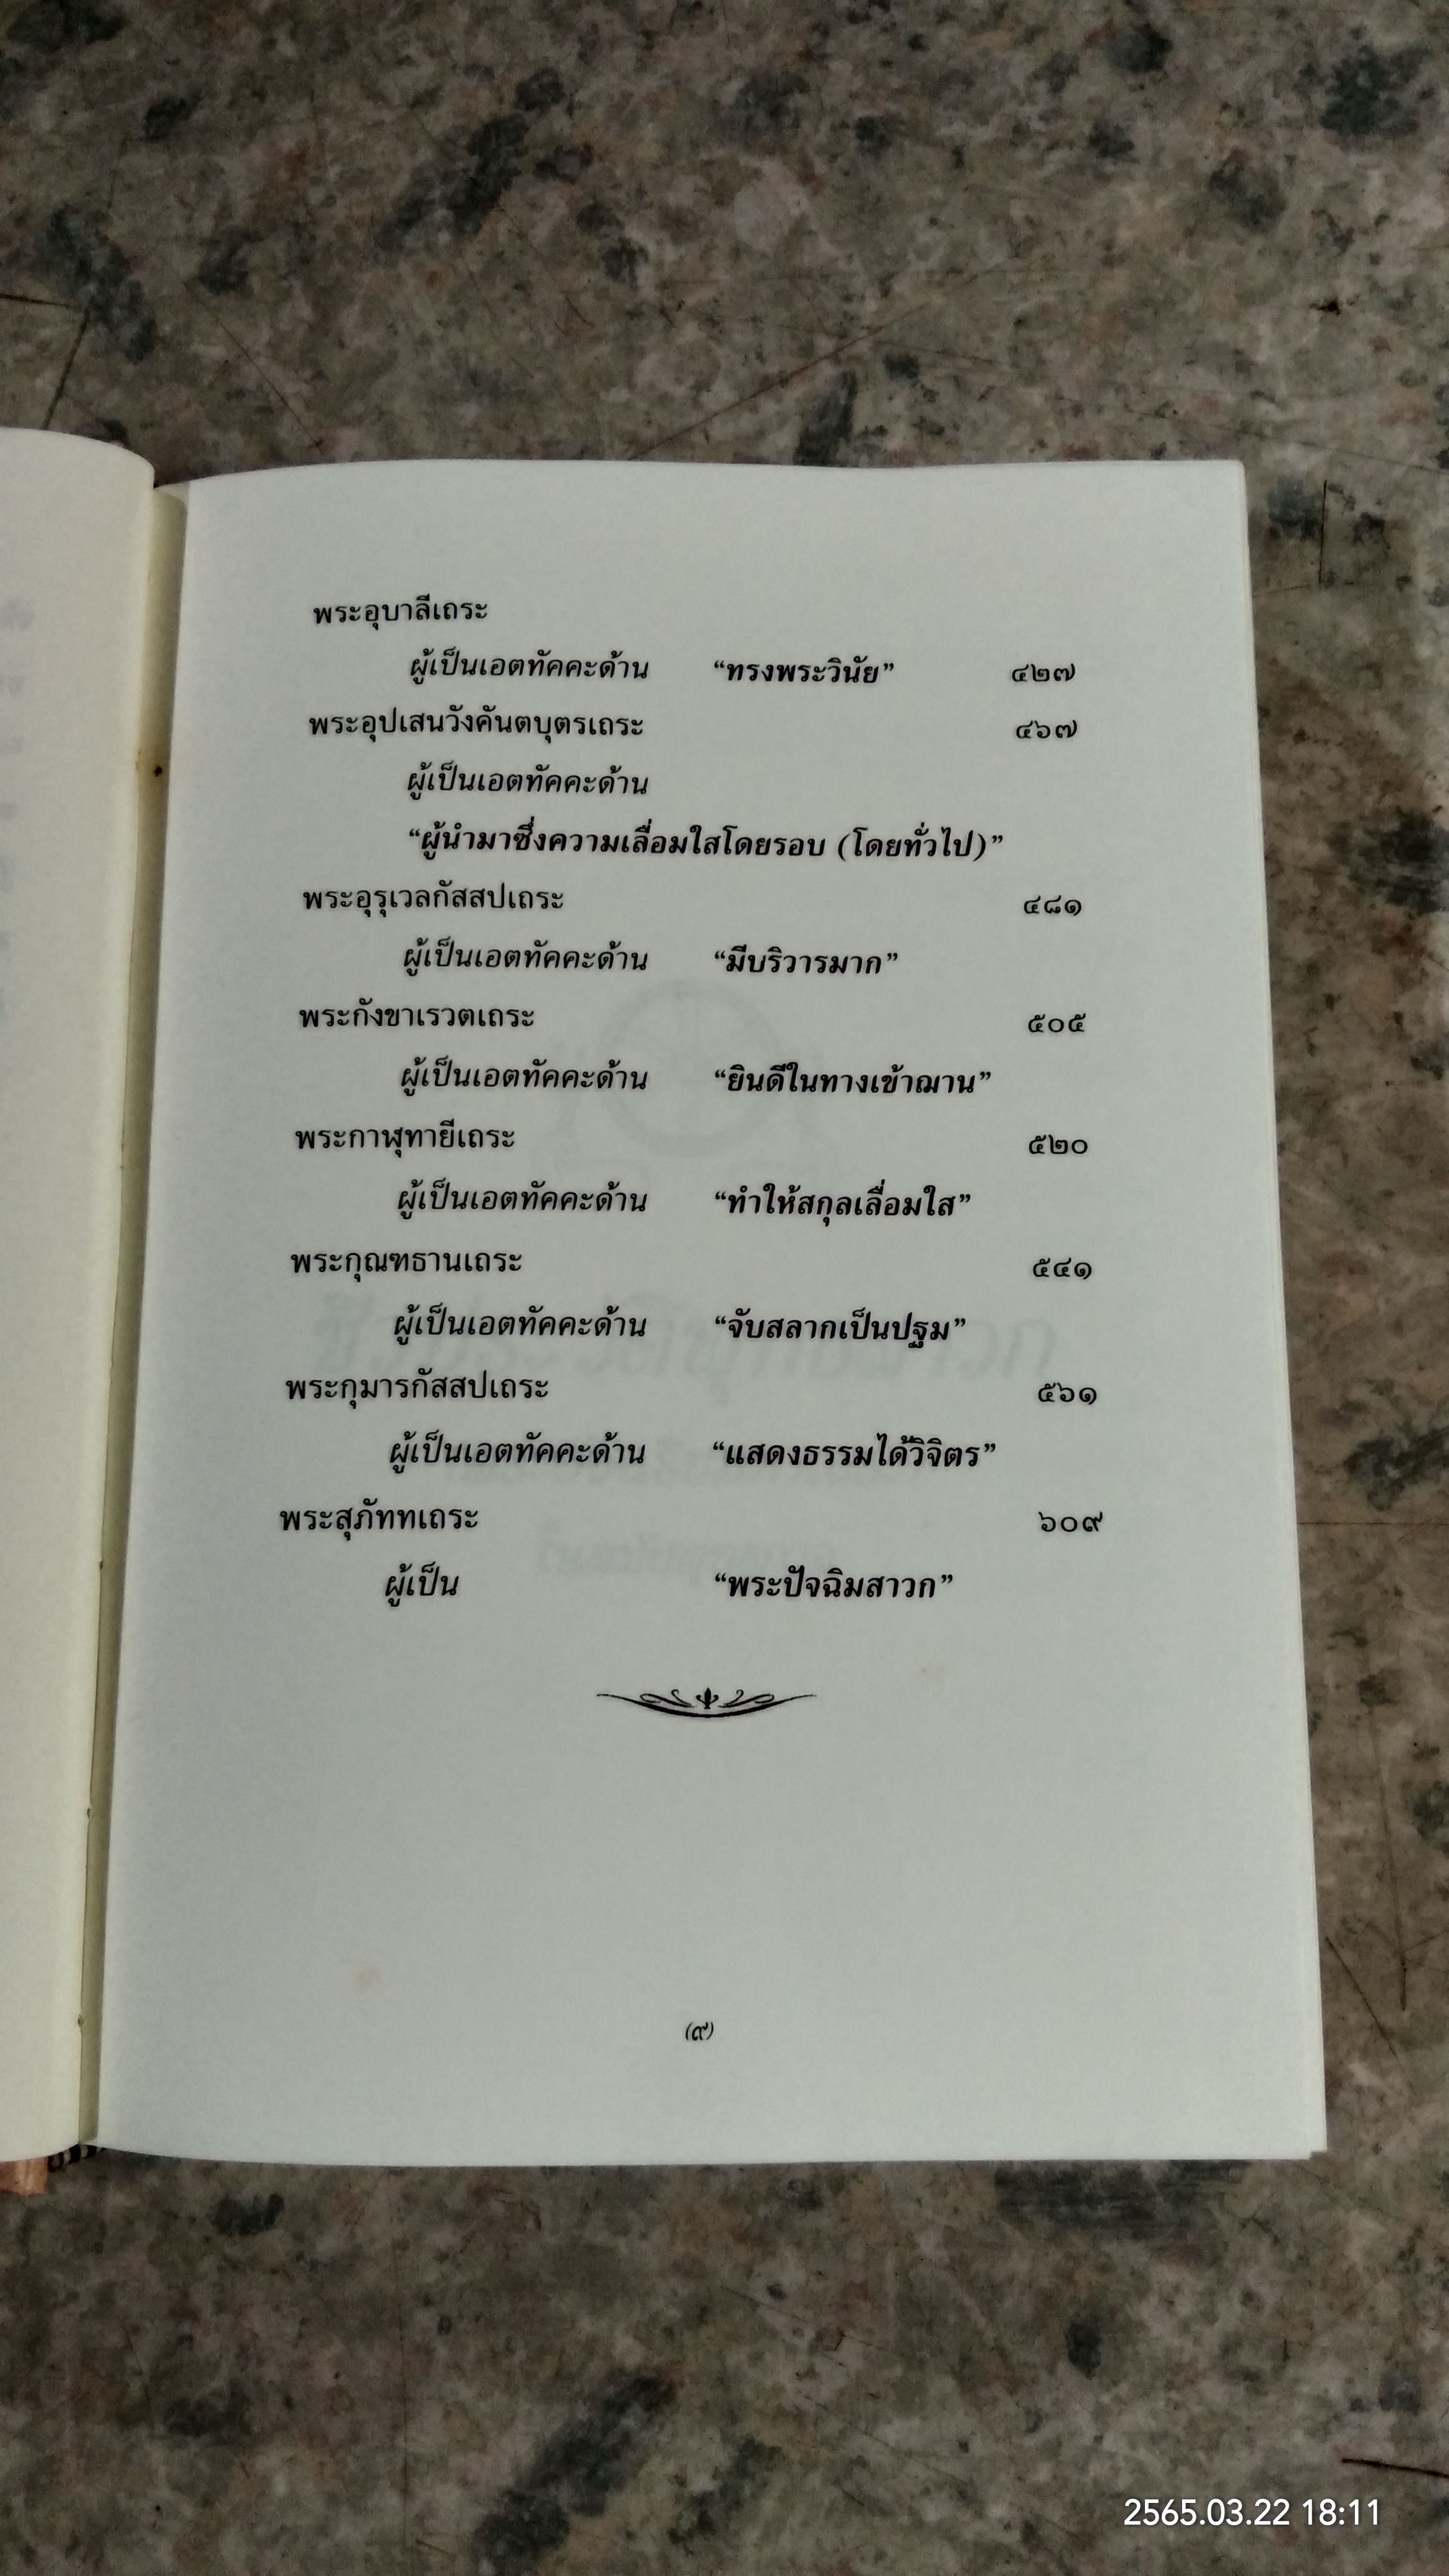 พระอุบาลีเถระ
ผู้เป็นเอตทัคคะด้าน “ทรงพระวินัย” ๔๒๗
พระอุปเสนวังคันตบุตรเถระ ๔๖๗
ผู้เป็นเอตทัคคะด้าน
“ผู้นำมาซึ่งความเลื่อมใสโดยรอบ (โดยทั่วไป)”
พระอุรุเวลกัสสปเถระ ๔๘๑
ผู้เป็นเอตทัคคะด้าน “มีบริวารมาก”
พระกังขาเรวตเถระ ๕๐๕
ผู้เป็นเอตทัคคะด้าน “ยินดีในทางเข้าฌาน”
พระกาฬุทายีเถระ ๕๒๐
ผู้เป็นเอตทัคคะด้าน “ทำให้สกุลเลื่อมใส”
พระกุณฑธานเถระ ๕๔๑
ผู้เป็นเอตทัคคะด้าน “จับสลากเป็นปฐม”
พระกุมารกัสสปเถระ ๕๖๑
ผู้เป็นเอตทัคคะด้าน “แสดงธรรมได้วิจิตร”
พระสุภัททเถระ ๖๐๙
ผู้เป็น “พระปัจฉิมสาวก”
(๙)
2565.03.22 18:11